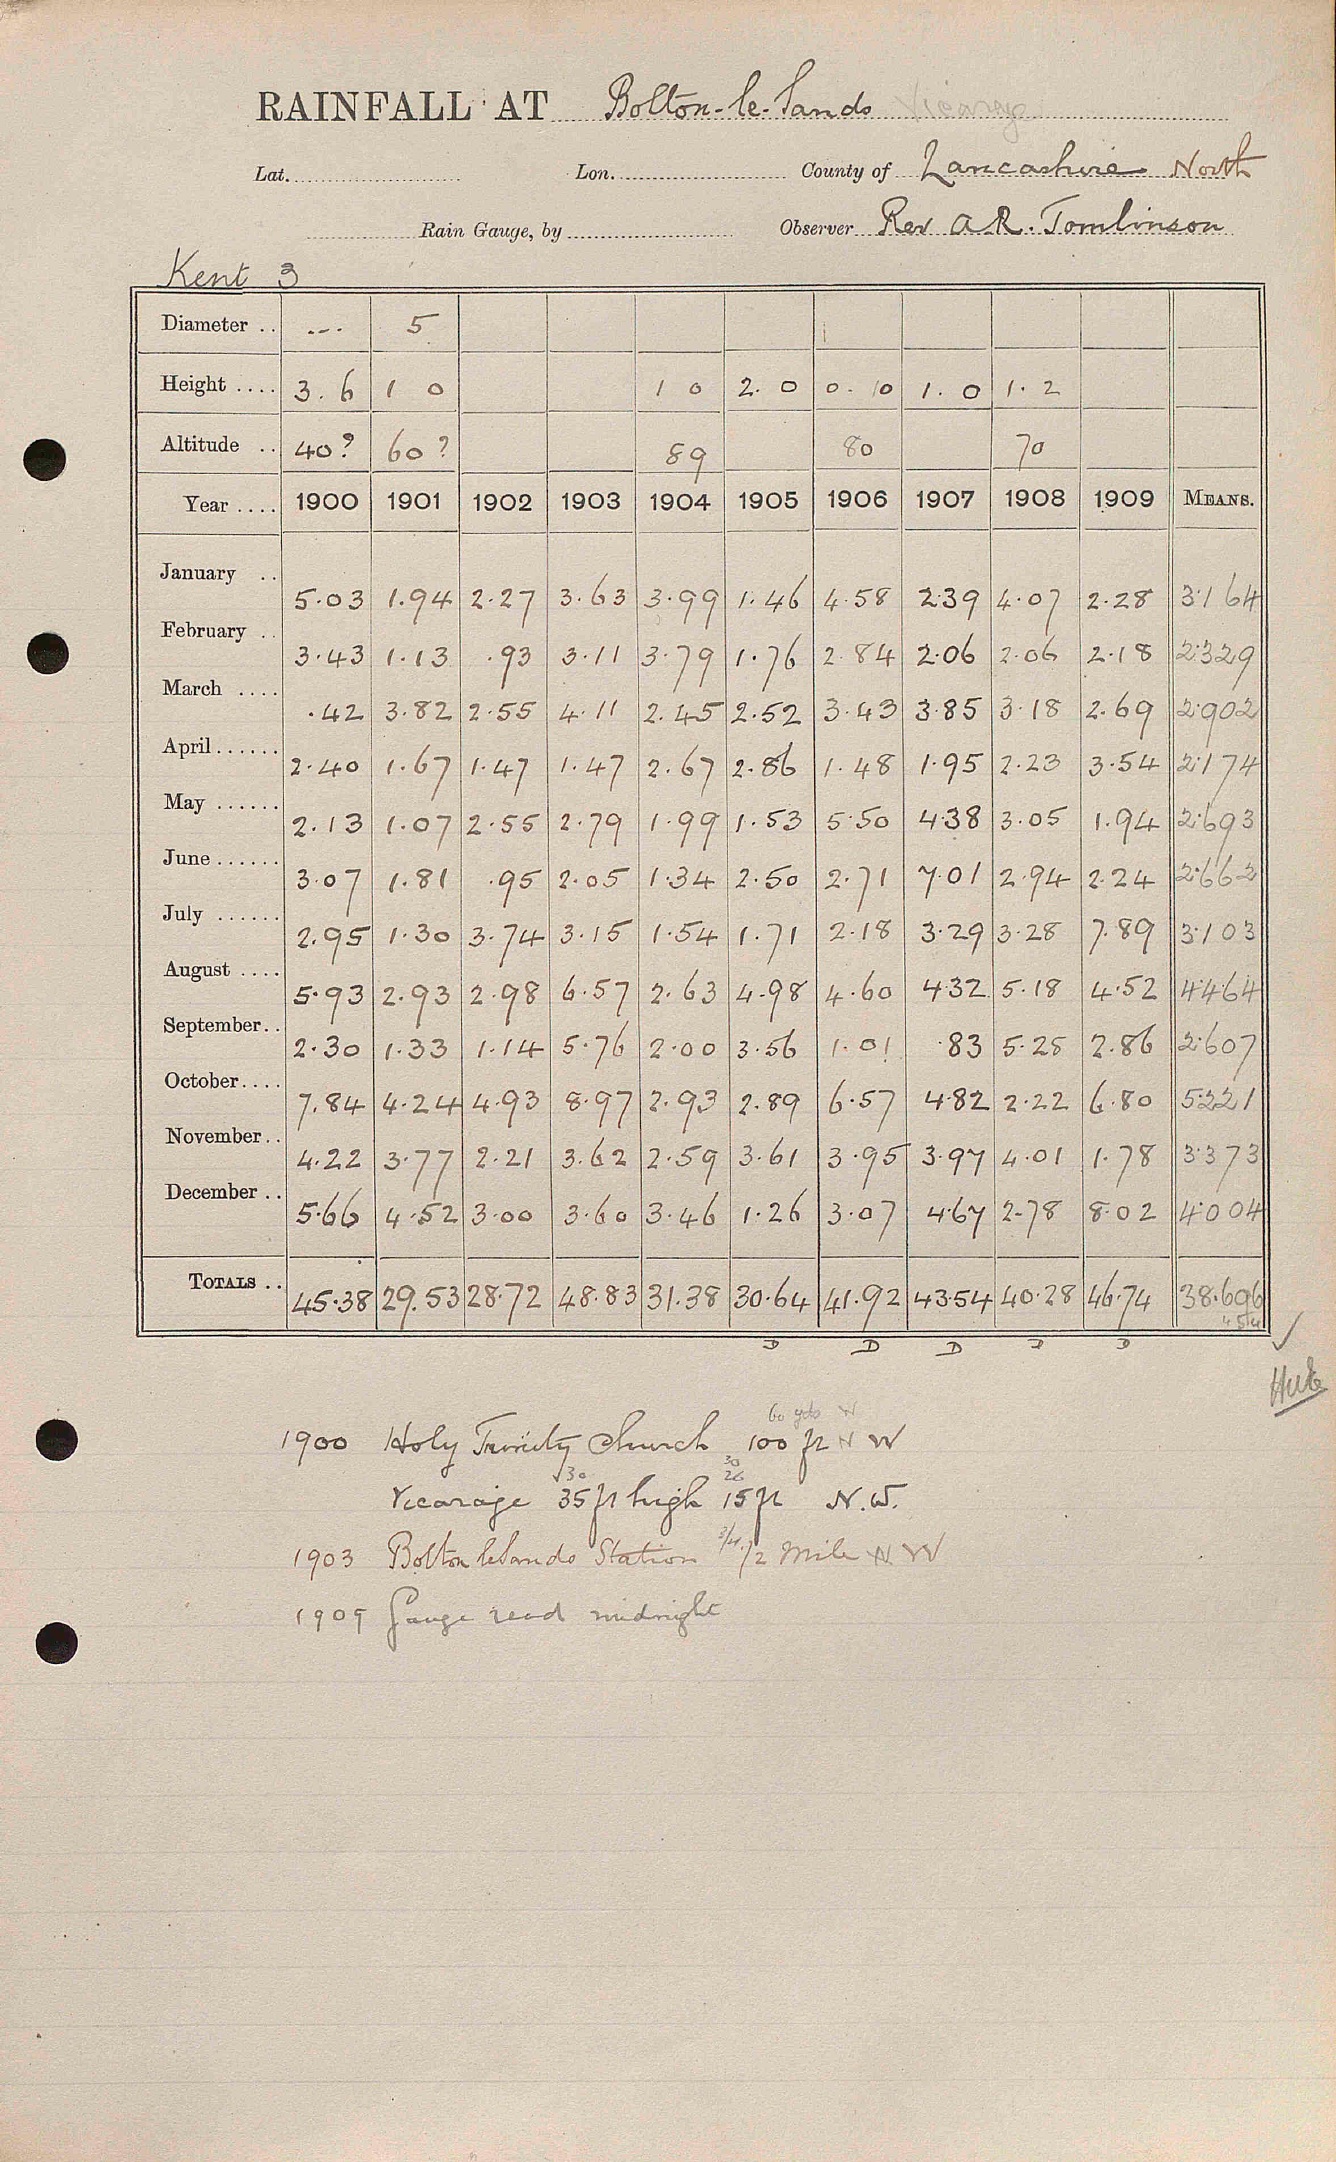 RAINFALL AT Bolton-le-Sands Vicarage
Lat. Lon. County of Lancashire North
Rain Gauge, by Observer Rev A.R. Tomlinson
Kent 3
Diameter .. --- 5
Height .... 3.6 1 0 1 0 2.0 0.10 1.0 1.2
Altitude .. 40? 60? 89 80 70
Year .... 1900 1901 1902 1903 1904 1905 1906 1907 1908 1909 MEANS.
January .. 5.03 1.94 2.27 3.63 3.99 1.46 4.58 2.39 4.07 2.28 3.164
February .. 3.43 1.13 .93 3.11 3.79 1.76 2.84 2.06 2.06 2.18 2.329
March .... .42 3.82 2.55 4.11 2.45 2.52 3.43 3.85 3.18 2.69 2.902
April ...... 2.40 1.67 1.47 1.47 2.67 2.86 1.48 1.95 2.23 3.54 2.174
May ...... 2.13 1.07 2.55 2.79 1.99 1.53 5.50 4.38 3.05 1.94 2.693
June ...... 3.07 1.81 .95 2.05 1.34 2.50 2.71 7.01 2.94 2.24 2.662
July ...... 2.95 1.30 3.74 3.15 1.54 1.71 2.18 3.29 3.28 7.89 3.103
August .... 5.93 2.93 2.98 6.57 2.63 4.98 4.60 4.32 5.18 4.52 4.464
September .. 2.30 1.33 1.14 5.76 2.00 3.56 1.01 .83 5.28 2.86 2.607
October .... 7.84 4.24 4.93 8.97 2.93 2.89 6.57 4.82 2.22 6.80 5.221
November .. 4.22 3.77 2.21 3.62 2.59 3.61 3.95 3.97 4.01 1.78 3.373
December .. 5.66 4.52 3.00 3.60 3.46 1.26 3.07 4.67 2.78 8.02 4.004
TOTALS .. 45.38 29.53 28.72 48.83 31.38 30.64 41.92 43.54 40.28 46.74 38.696
D D D D D
60 yds W
1900 Holy Trinity Church 100 ft N W
30 30 26
Vicarage 35 ft high 15 ft N.W.
1903 Bolton le Sands Station 3/4 1/2 Mile N W
1909 Gauge read midnight